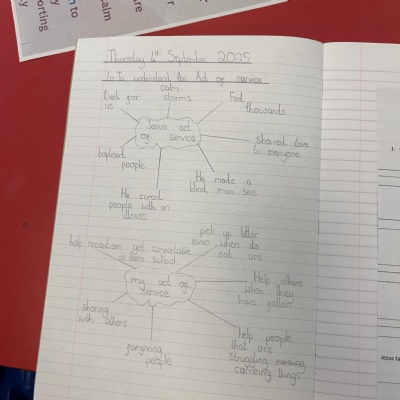 porting
to
alm
are
r
Thursday 4th September 2025
L.O: To understand the Act of service
Died for
us
calm
storms
Fed
thousands
Jesus act
of service
Shared love
to everyone
baptised
people
He made a
blind man see
He cured
people with an
illness
pick up litter
even when its
not urs
help reception get comfortable
in there school
my act of
service
Help others
when they
have fallen
sharing
with others
forgiving
people
help people
that are
struggling
carreing things
1.
Jesus ta